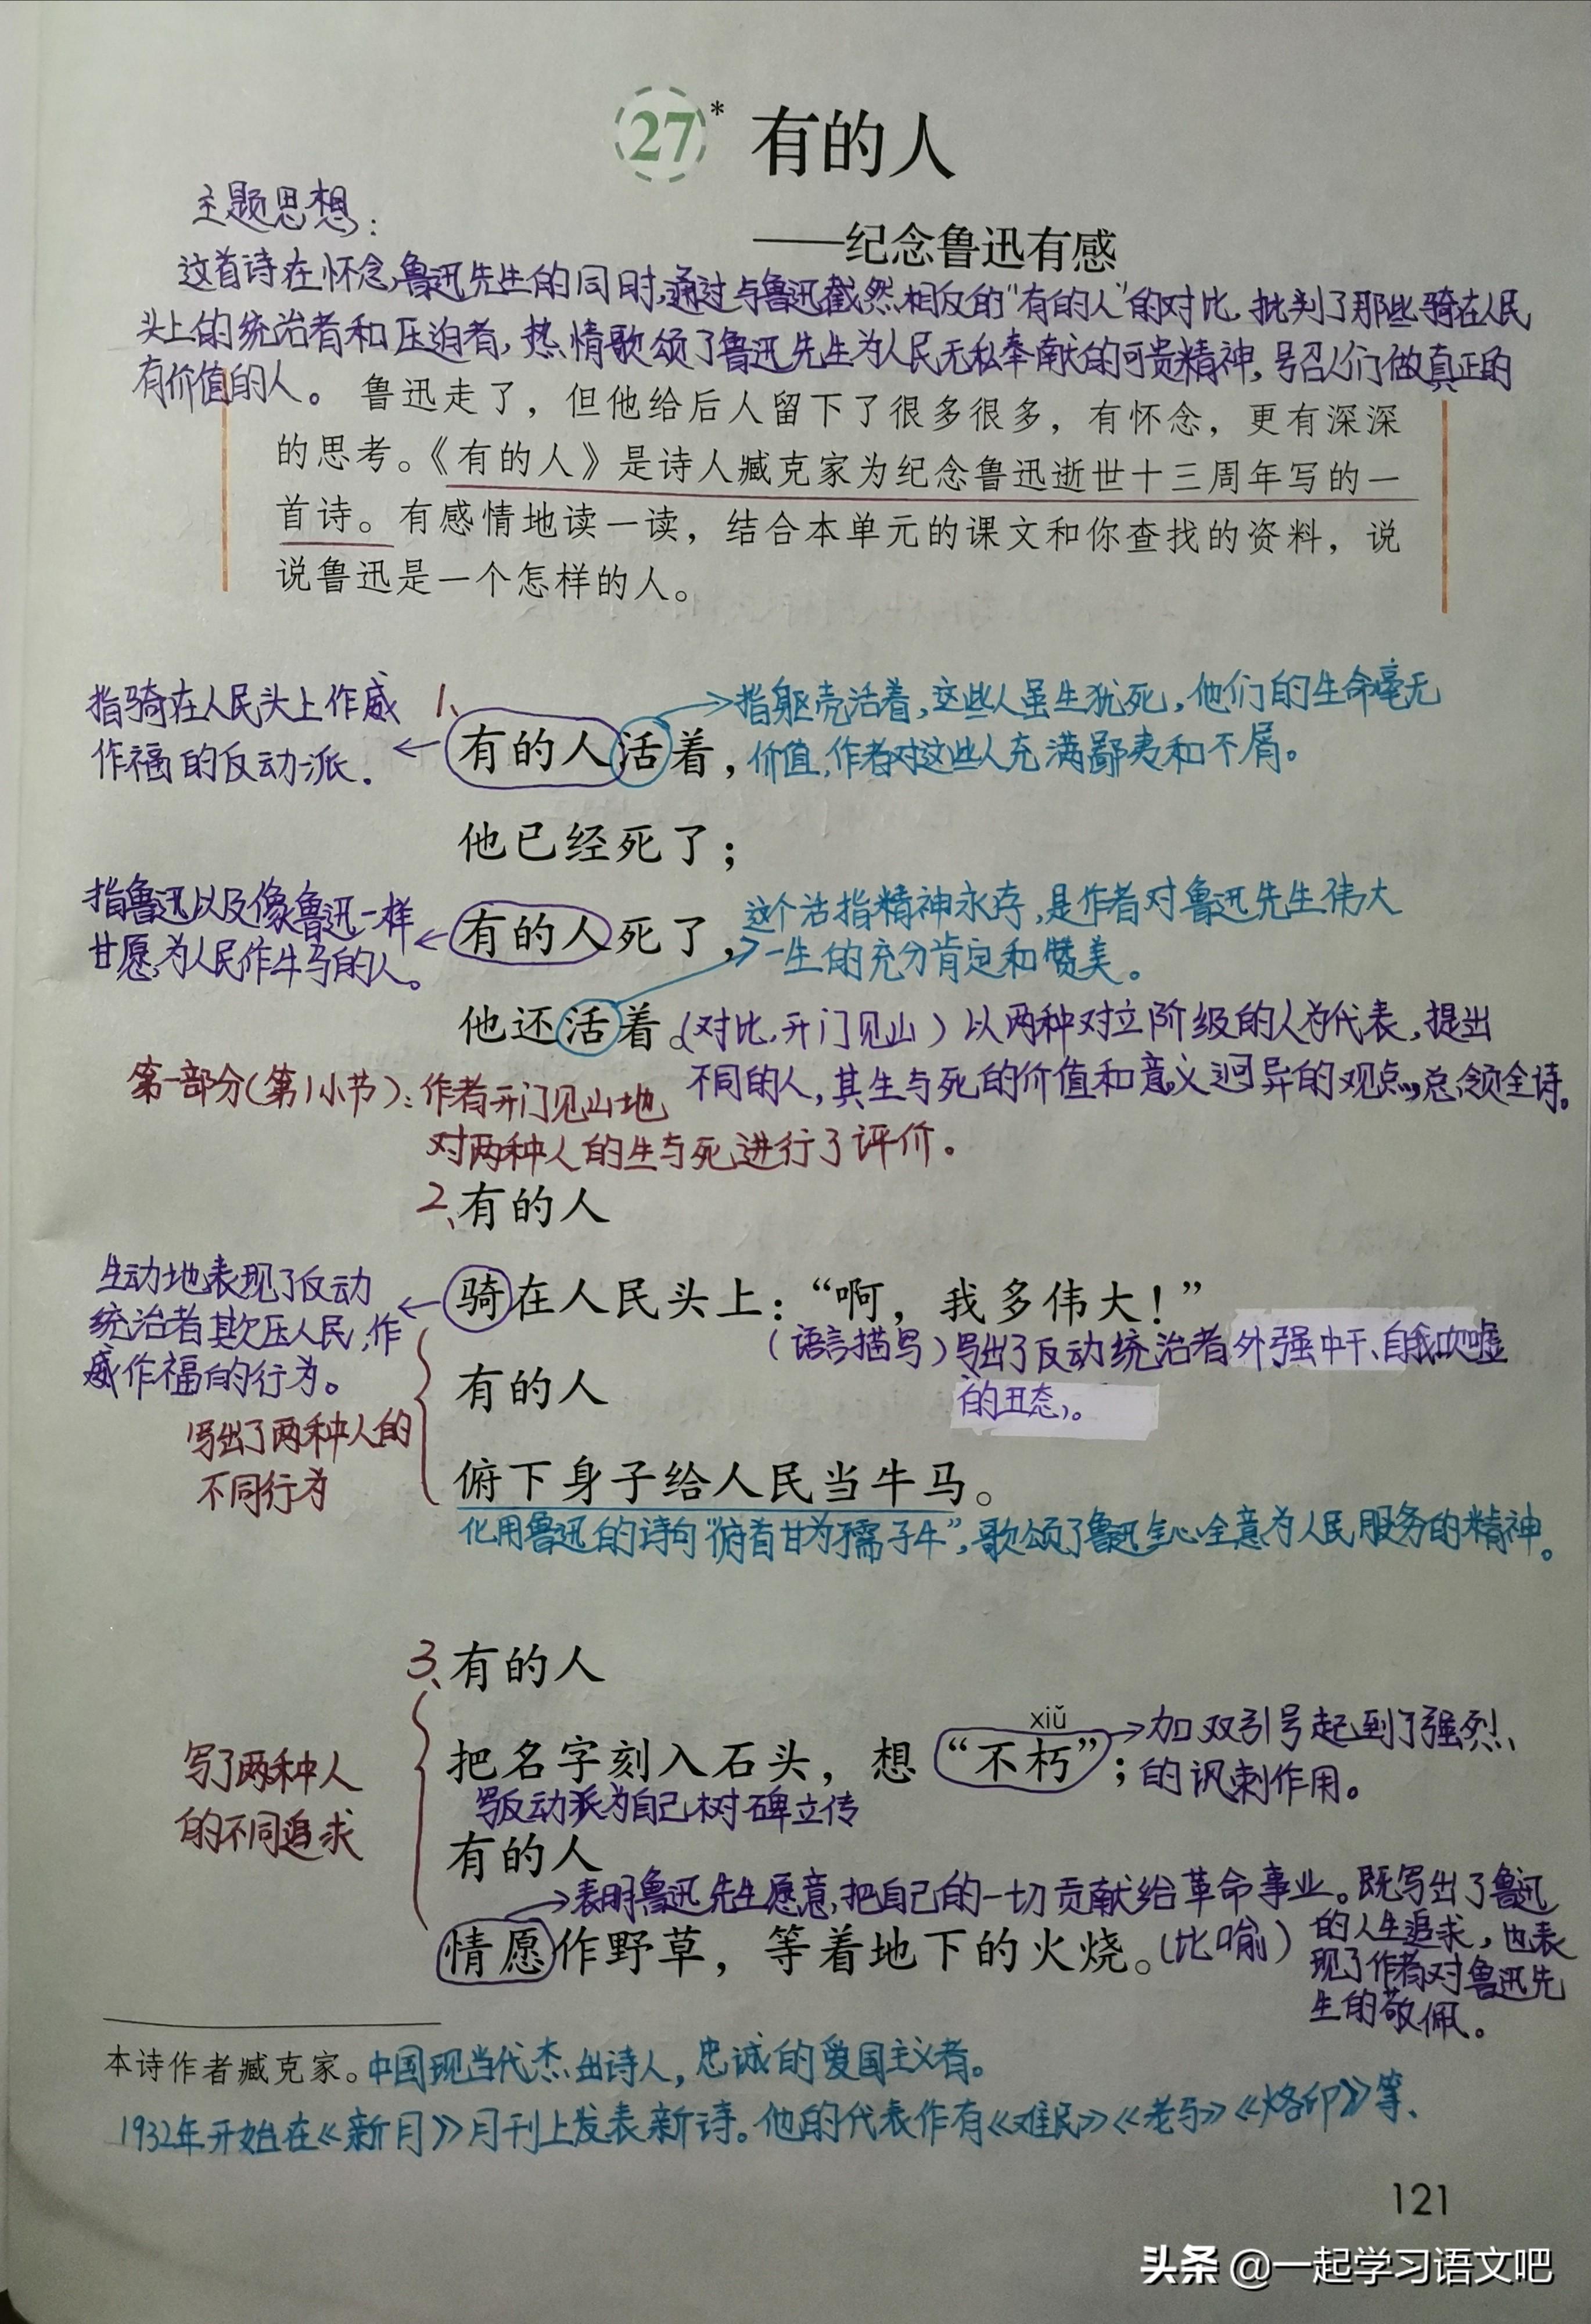 27* 有的人
——纪念鲁迅有感
主题思想:
这首诗在怀念鲁迅先生的同时,通过与鲁迅截然相反的“有的人”的对比,批判了那些骑在人民
头上的统治者和压迫者,热情歌颂了鲁迅先生为人民无私奉献的可贵精神,号召人们做真正的
有价值的人。
鲁迅走了，但他给后人留下了很多很多，有怀念，更有深深
的思考。《有的人》是诗人臧克家为纪念鲁迅逝世十三周年写的一
首诗。有感情地读一读，结合本单元的课文和你查找的资料，说
说鲁迅是一个怎样的人。
指骑在人民头上作威
作福的反动派.
1、
有的人活着，
指躯壳活着,这些人虽生犹死,他们的生命毫无
价值,作者对这些人充满鄙夷和不屑。
他已经死了；
指鲁迅以及像鲁迅一样
甘愿为人民作牛马的人。
有的人死了，
这个活指精神永存,是作者对鲁迅先生伟大
一生的充分肯定和赞美。
他还活着。
(对比,开门见山)以两种对立阶级的人为代表,提出
不同的人,其生与死的价值和意义迥异的观点,总领全诗。
第一部分(第1小节):作者开门见山地
对两种人的生与死进行了评价.
2、有的人
骑在人民头上：“啊，我多伟大！”
生动地表现了反动
统治者欺压人民,作
威作福的行为。
(语言描写)写出了反动统治者外强中干、自我吹嘘
的丑态。
有的人
写出了两种人的
不同行为
俯下身子给人民当牛马。
化用鲁迅的诗句“俯首甘为孺子牛”,歌颂了鲁迅全心全意为人民服务的精神。
3、有的人
xiǔ
把名字刻入石头，想“不朽”；
加双引号起到了强烈
的讽刺作用。
写反动派为自己树碑立传
写了两种人
的不同追求
有的人
表明鲁迅先生愿意把自己的一切贡献给革命事业。既写出了鲁迅
的人生追求,也表
现了作者对鲁迅先
生的敬佩。
情愿作野草，等着地下的火烧。(比喻)
本诗作者臧克家。中国现当代杰出诗人,忠诚的爱国主义者。
1932年开始在《新月》月刊上发表新诗。他的代表作有《难民》《老马》《烙印》等、
121
头条 @一起学习语文吧